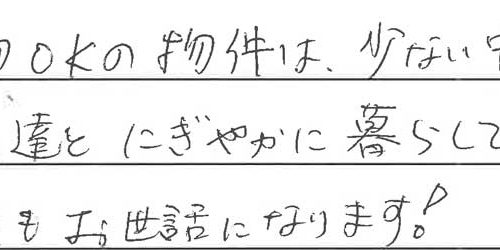 OKの物件は、少ない
達と にぎやかに 暮らして
も お世話になります!